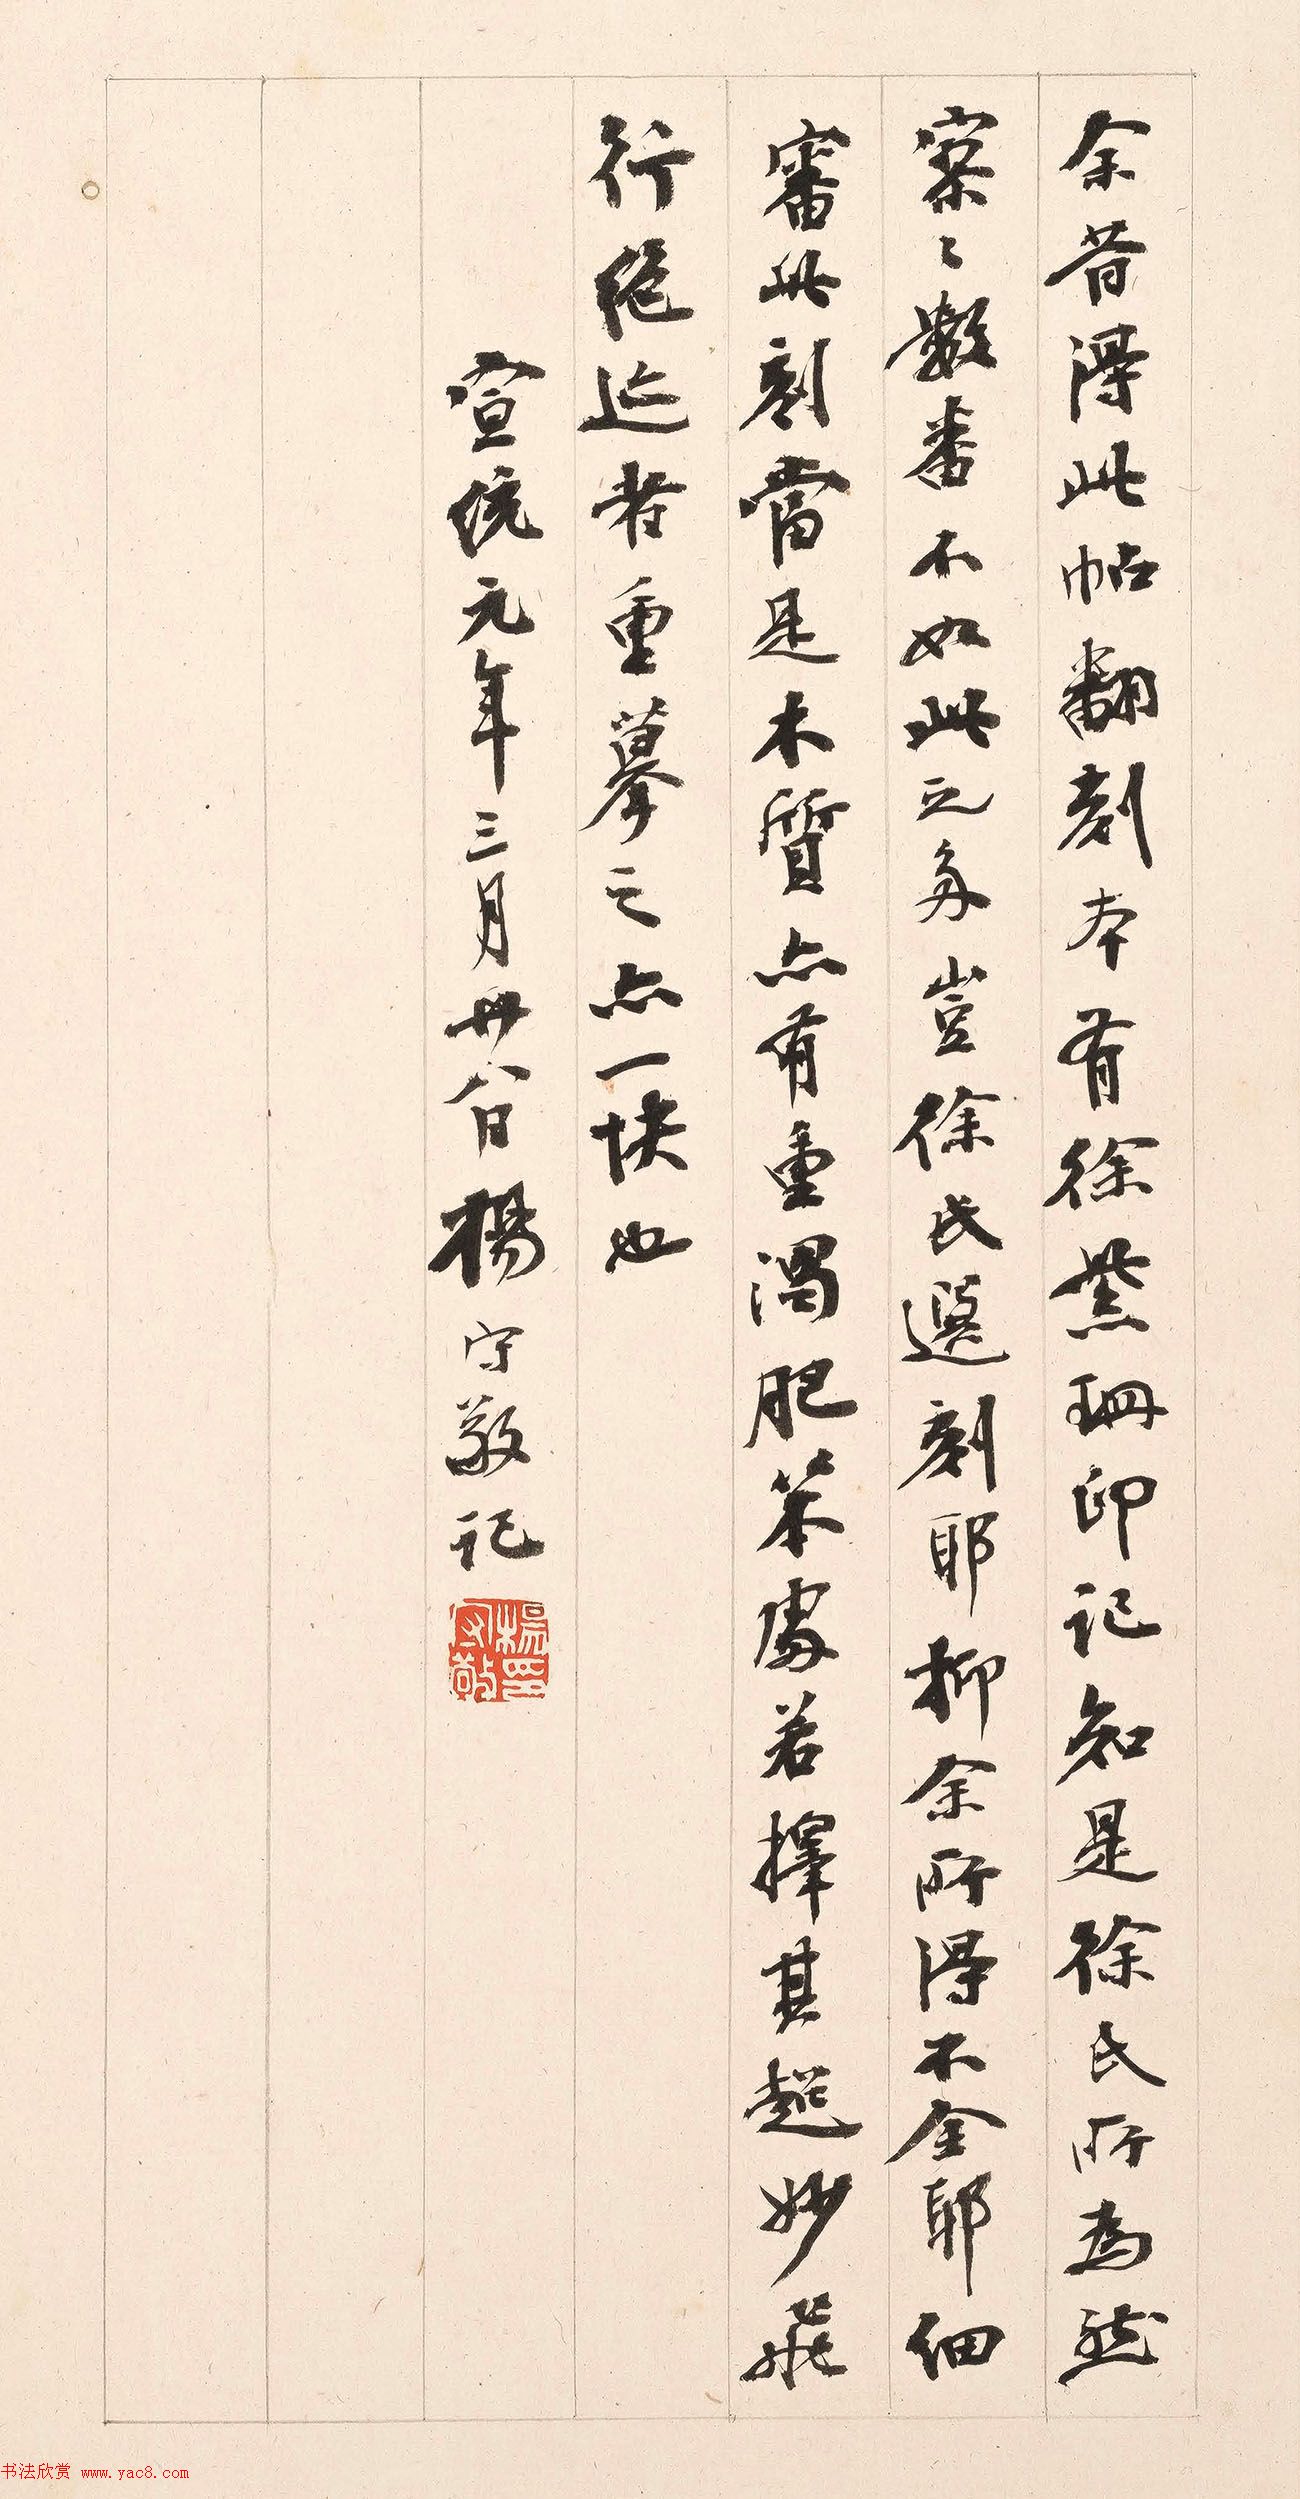 余昔得此帖翻刻本有徐紫珊印記知是徐氏所為然
寥〻數番不如此之多豈徐氏選刻耶抑余所得不全耶細
審此刻當是木質亦有重濁肥笨處若擇其超妙飛
行絕迹者重摹之亦一快也
宣統元年三月廿八日楊守敬記
楊守敬印
书法欣赏 www.yac8.com